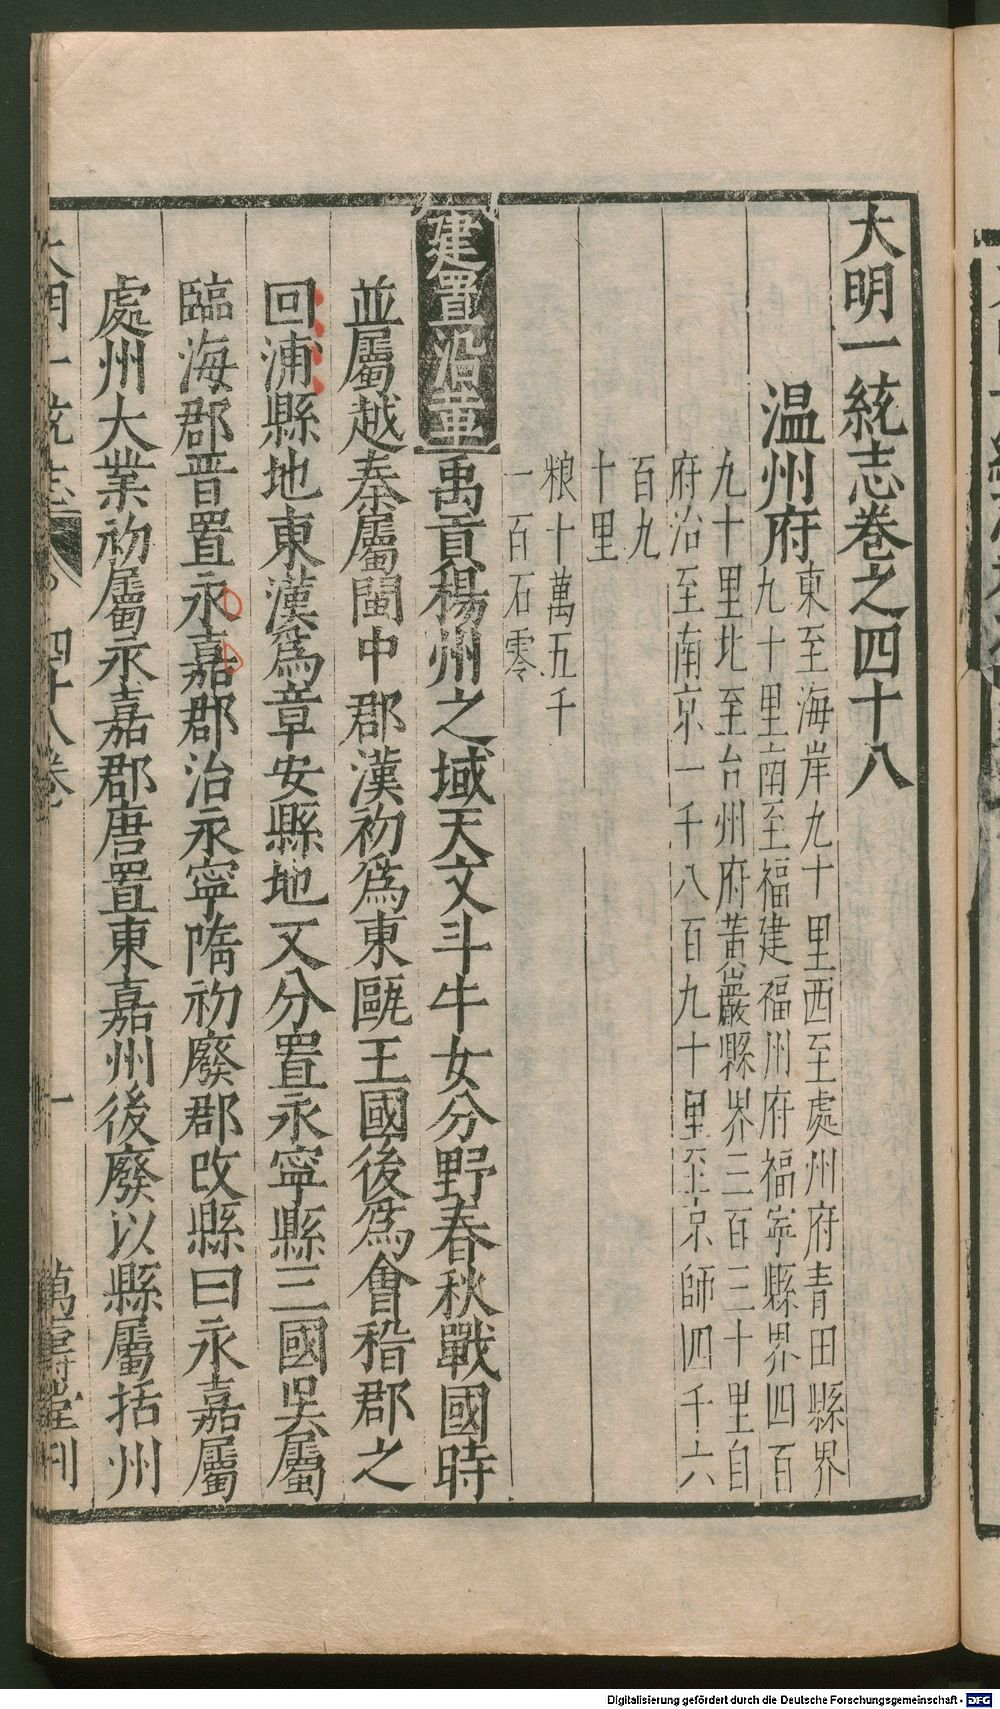 大明一統志卷之四十八
温州府
東至海岸九十里西至處州府青田縣界
九十里南至福建福州府福寧縣界四百
九十里北至台州府黃巖縣界三百三十里自
府治至南京一千八百九十里至京師四千六
百九
十里
粮十萬五千
一百石零
建置沿革
禹貢楊州之域天文斗牛女分野春秋戰國時
並屬越秦屬閩中郡漢初爲東甌王國後爲會稽郡之
回浦縣地東漢爲章安縣地又分置永寧縣三國吳屬
臨海郡晋置永嘉郡治永寧隋初廢郡改縣曰永嘉屬
處州大業初屬永嘉郡唐置東嘉州後廢以縣屬括州
大明一統志 四十八卷 一 萬壽堂刊
Digitalisierung gefördert durch die Deutsche Forschungsgemeinschaft - DFG